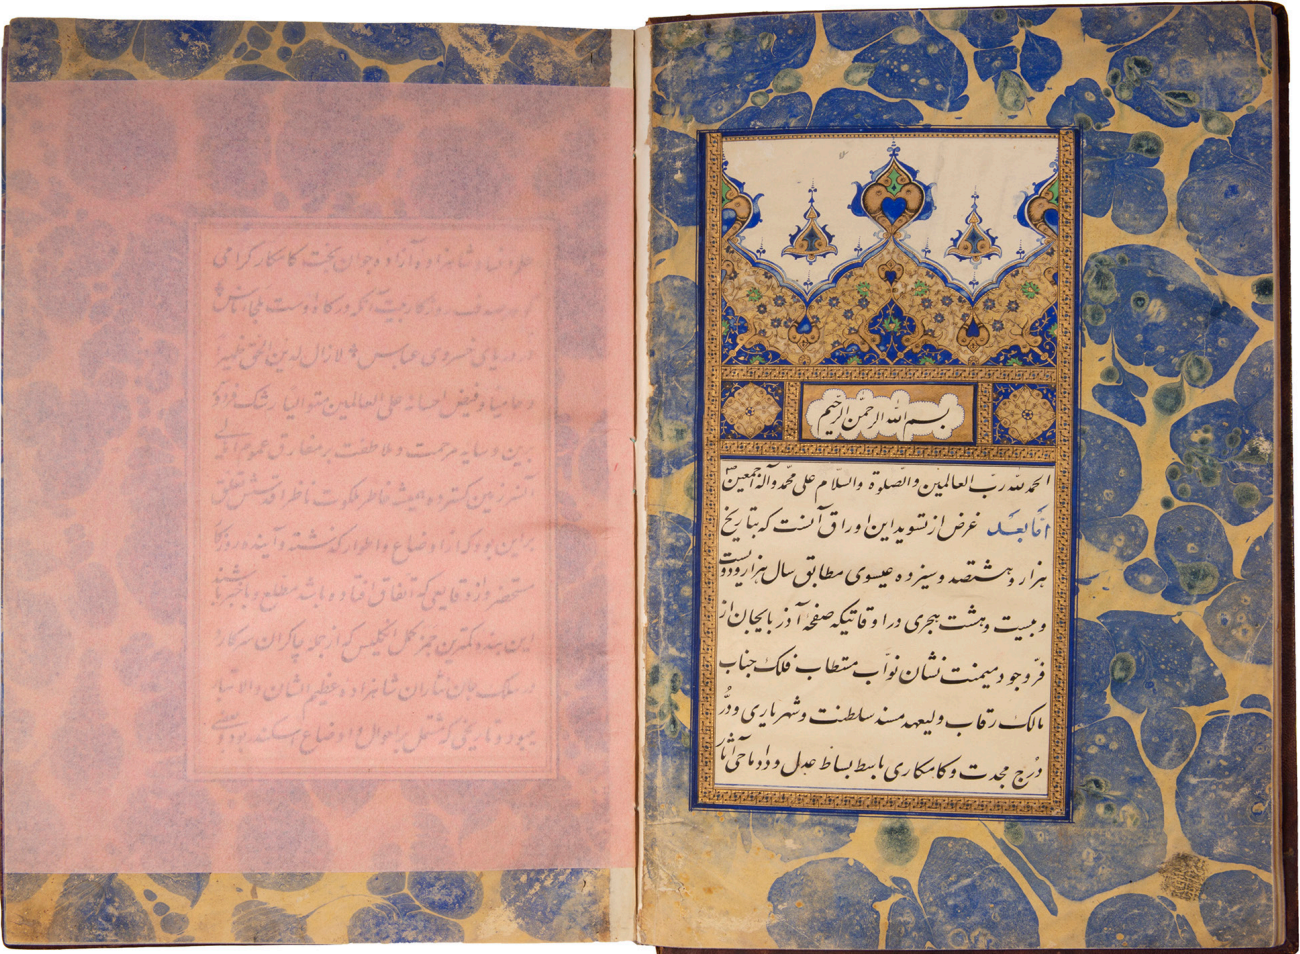 بسم الله الرحمن الرحیم
الحمد لله رب العالمین والصلوة والسلام علی محمد وآله اجمعین
اما بعد غرض از تسوید این اوراق آنست که بتاریخ
هزار و هشتصد و سیزده عیسوی مطابق سال هزار و دویست
و بیست و هشت هجری در اوقاتیکه صفحه آذربایجان از
فرّ وجود میمنت نشان نوّاب مستطاب فلک جناب
مالک رقاب ولیعهد مسند سلطنت و شهریاری و درّ
درج مجدت و کامکاری باسط بساط عدل و داد ماحی آثار
شاهزاده آزاده جوان بخت کامکار کرامی
خسروی عباس لازال
وفیض احسانه علی العالمین متوالیا رشک
برین و سایه مرحمت و ملاطفت بر مفارق عموم
خاطر ملکوت ناظر اقدسش تعلق
براین بود که از اوضاع و اطوار گذشته و آینده روزگار
مستحضر و از وقایعی که اتفاق افتاده باشد مطلع و باخبر باشند
این بنده کمترین انکلیس که از جمله چاکران سرکار
جان نثاران شاهزاده عظیم الشان والاتبار
تاریخی که مشتمل بر احوال و اوضاع اسکندر بود